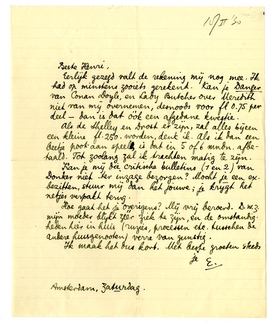 10/II 30
Beste Henri,
Eerlijk gezegd valt de rekening mij nog mee. Ik
had op minstens zooiets gerekend. Kan je Danger
van Conan Doyle, en Lady Butcher over Meredith
niet van mij overnemen, desnoods voor ft 0.75 per
deel — dan is dat ook een afgedane kwestie.
Als de Shelley en Drost er zijn, zal alles bijeen
een kleine ft 250. worden, denk ik. Als ik dan een
beetje poot-aan speel, is dat in 5 of 6 mnbn. afbe-
taald. Tot zoolang zal ik trachten matig te zijn.
Kan je mij die critische bulletins (1 en 2) van
Donker niet ter inzage bezorgen? Mocht je een ex.
bezitten, stuur mij dan het jouwe; je krijgt het
netjes verpakt terug.
Hoe gaat het je overigens? Mij vrij beroerd. D.w.z.
mijn moeder blijft zeer ziek te zijn, en de omstandig-
heden hier in huis (ruzies, processen etc. tusschen de
andere huisgenooten) verre van gunstig.
Ik maak het dus kort. Met beste groeten steeds
je E.
Amsterdam, Zaterdag.